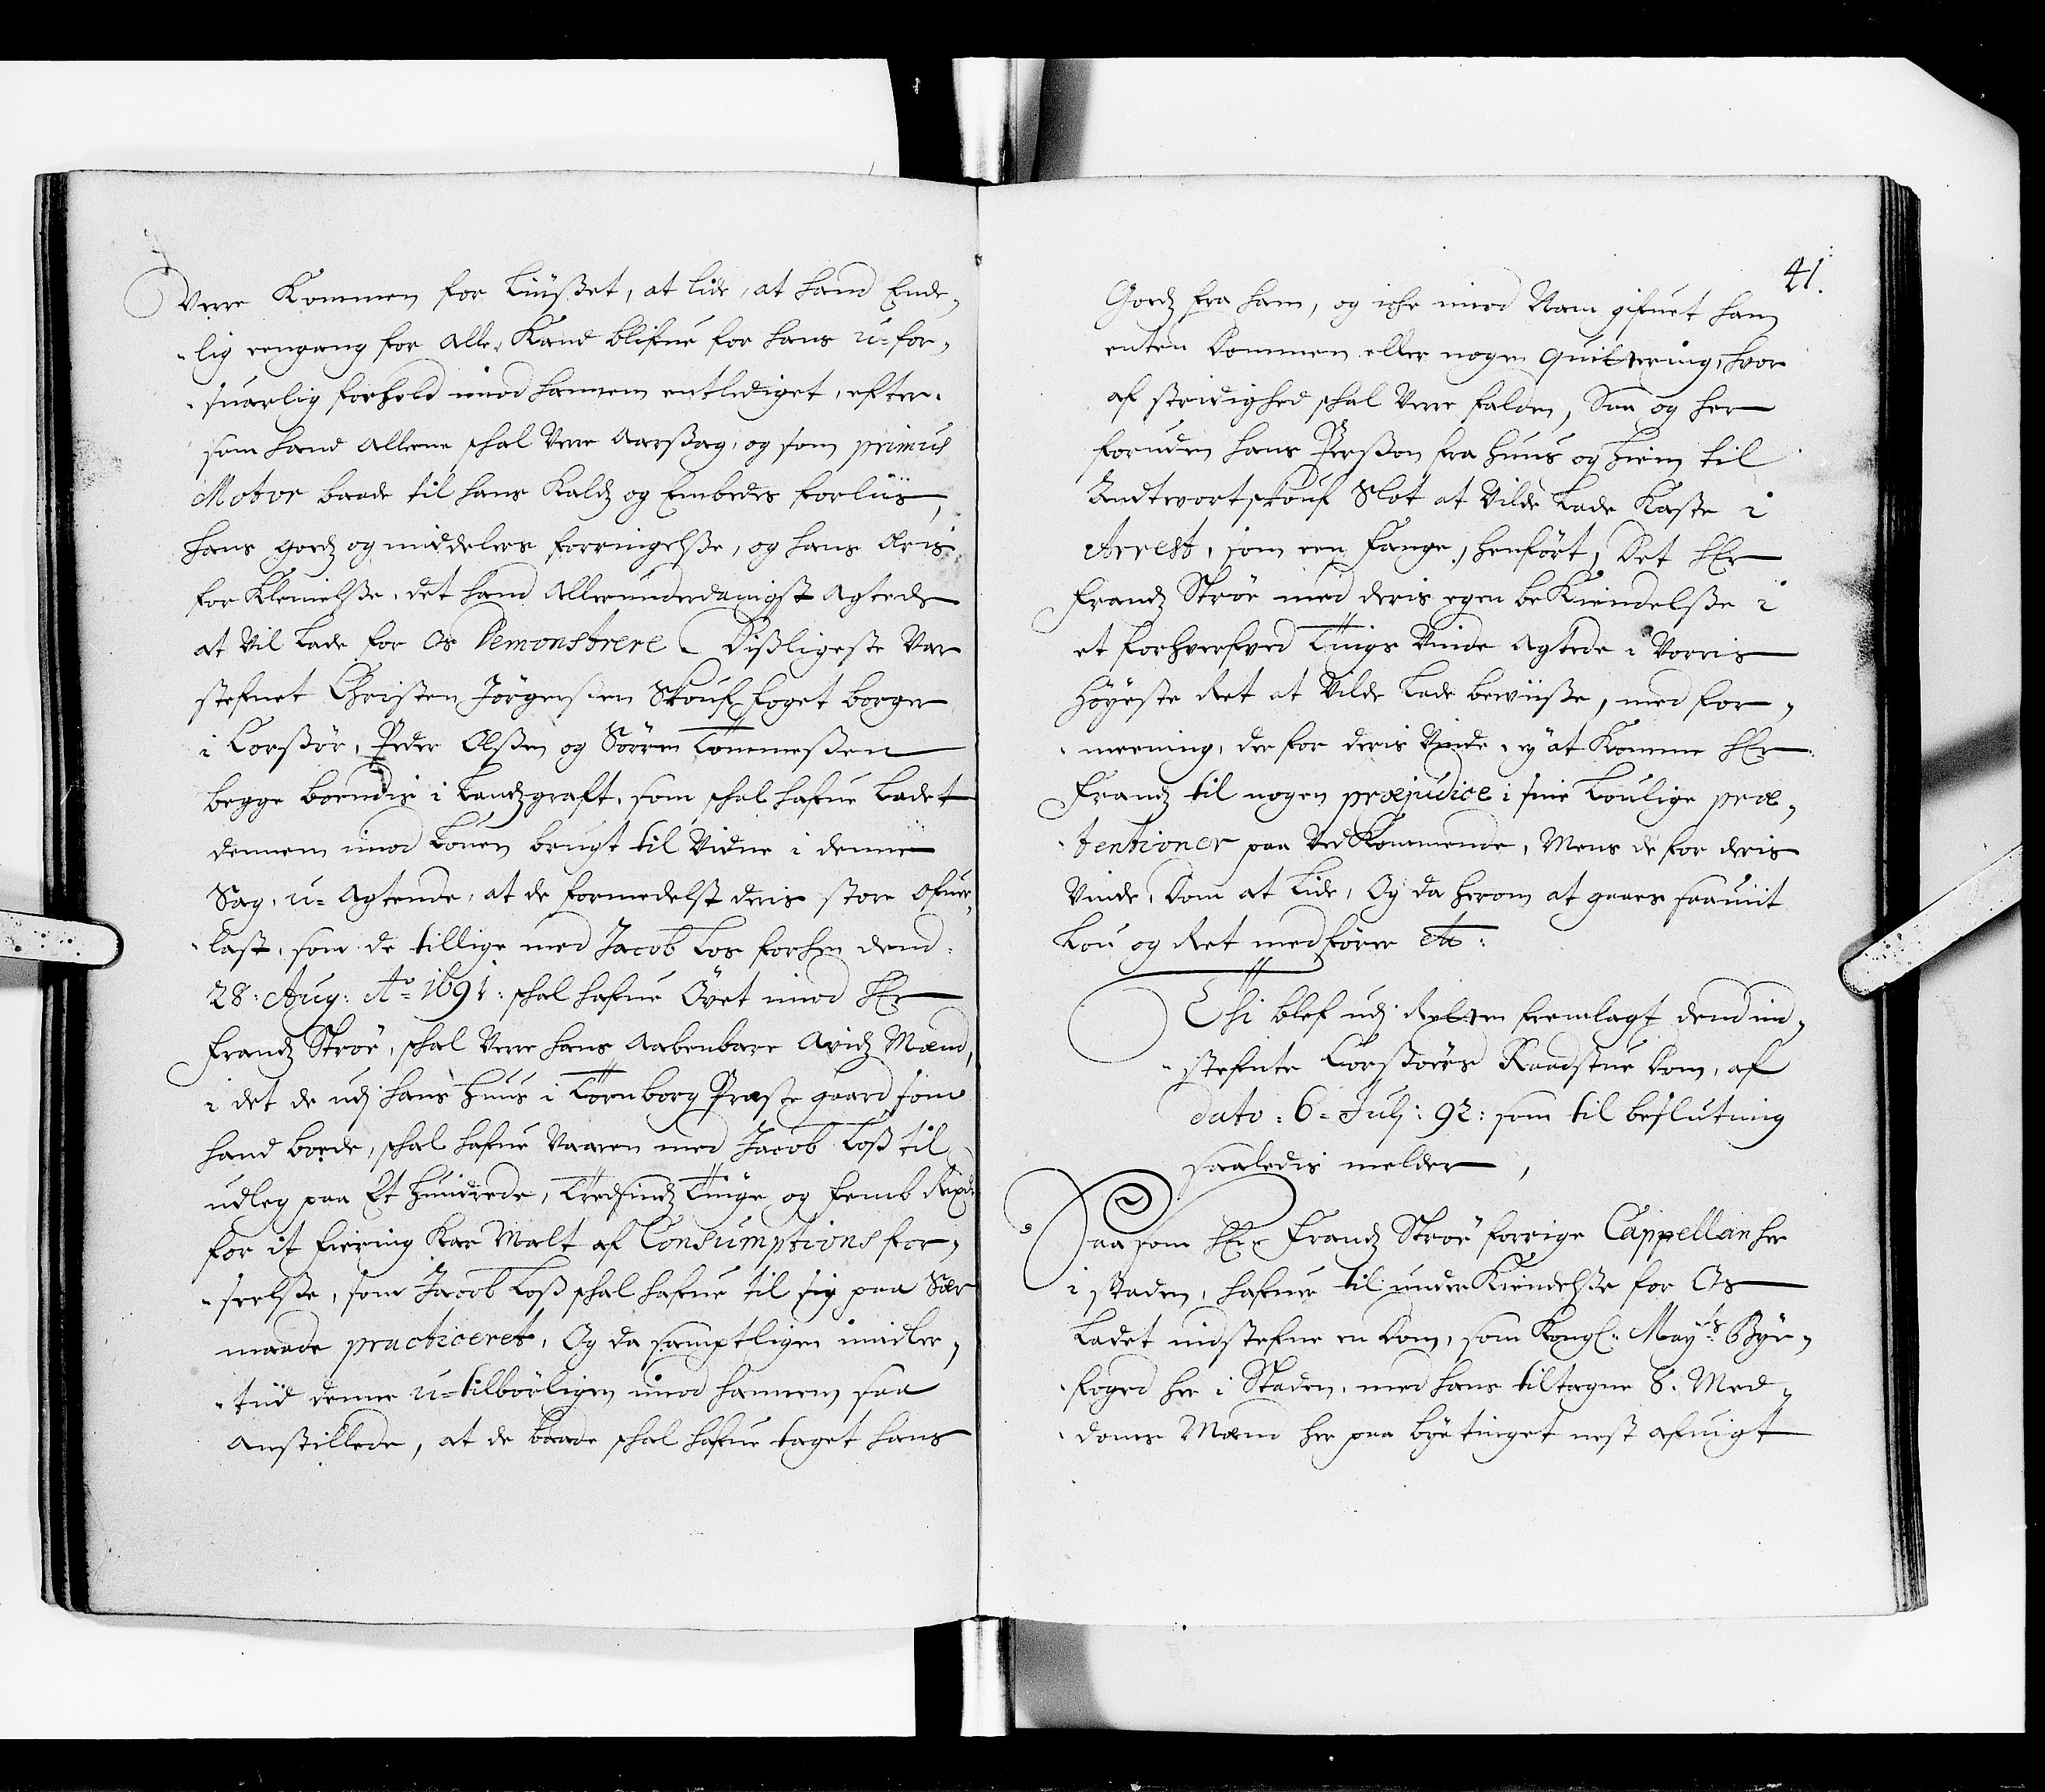 Verre Kommen for Liußet, at lide, at hand Ende-
lig eengang for Alle, Kand blifue for hans u-for-
suarlig forhold imod hannem entlediget, efter-
som hand Alleene schal Vere Aarßag, og som primus
Motor baade til hans Kaldz og Embedes forliis,
hans Godz og middelers forringelße, og hans Æris
for Kleinelße, det hand Allerunderdanigst Agtede
at Vil Lade for Os Demonstrere. Dißligeste Var
stefnet Christen Jörgensen Skouf foget borger
i Corßör, Peder Olßen og Sören Tommeßen
begge boendis i Landzgraft, som schal hafue Ladet
dennem imod Louen brugt til Vidne i denne
Sag, u-Agtende, at de formedelst deris store Ofuer-
last, som de tillige med Jacob Los forhen dend
28: Aug: Ao 1691: schal hafue Övet imod Hr
Frandz Ströe, schal Vere hans Aabenbare Avidz Mænd,
i det de udj hans Huus i Tornborg Præste gaard som
hand boede, schal hafue Vaaren med Jacob Loß til
udleg paa Et Hundrede, Tredsindz Tiuge og femb Rixdr
for it fiering Kar Malt af Consumptions for-
seelße, som Jacob Loß schal hafue til sig paa Sær
maade practiceret, Og da samptligen imidler-
tiid denne u-tilbörligen imod hannem saa
Anstillede, at de baade schal hafue taget hans

41.
Godz fra ham, og iche imod Nam gifuet ham
enten Dommen eller nogen Quittering, hvor
af stridighed schal Vere falden, Saa og her
foruden hans Perßon fra Huus og Hiem til
Andtvortskouf Slot at Vilde Lade Kaste i
Arrest, som een Fange, henfört, Det Hr
Frandz Ströe med deris egen beKiendelße i
et forhverfved Tings Vinde Agtede i Vorris
Höyeste Ret at Vilde Lade bewiiße, med for-
meening, der for deris Vinde, ey at Komme Hr
Frandz til nogen præjudice i sine Loulige præ-
tentioner paa Ved Kommende, Mens de for deris
Vinde, Dom at Lide, Og da herom at gaaes saauiit
Lou og Ret medförer etc:
Thi blef udj Retten fremlagt dend ind-
stefnte Corßöers Raadstue Dom, af
dato: 6= Julj: 92: som til beslutning
saaledis melder,
Saasom Hr Frandz Ströe forrige Cappellan her
i staden, hafuer til underKiendelße for Os
Ladet indstefne en Dom, som Kongl: Mayts Bye-
foged her i Staden, med hans tiltagne 8. Med-
doms Mænd her paa byetinget nest afuigt